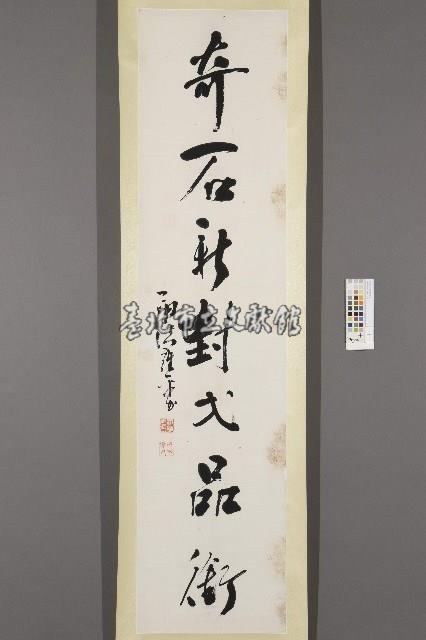 奇石新封弌品銜
臺北市立文獻館